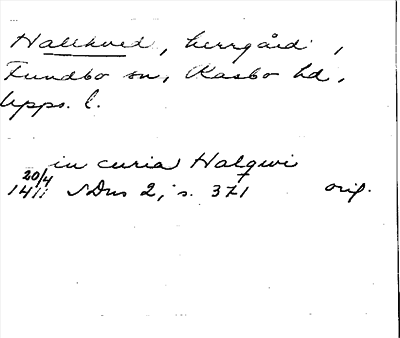 Hallkved, herrgård,
Fundbo sn, Rasbo hd,
Upps. l.
in curia Halqwi
20/4
1411 SDns 2, s. 371 orig.